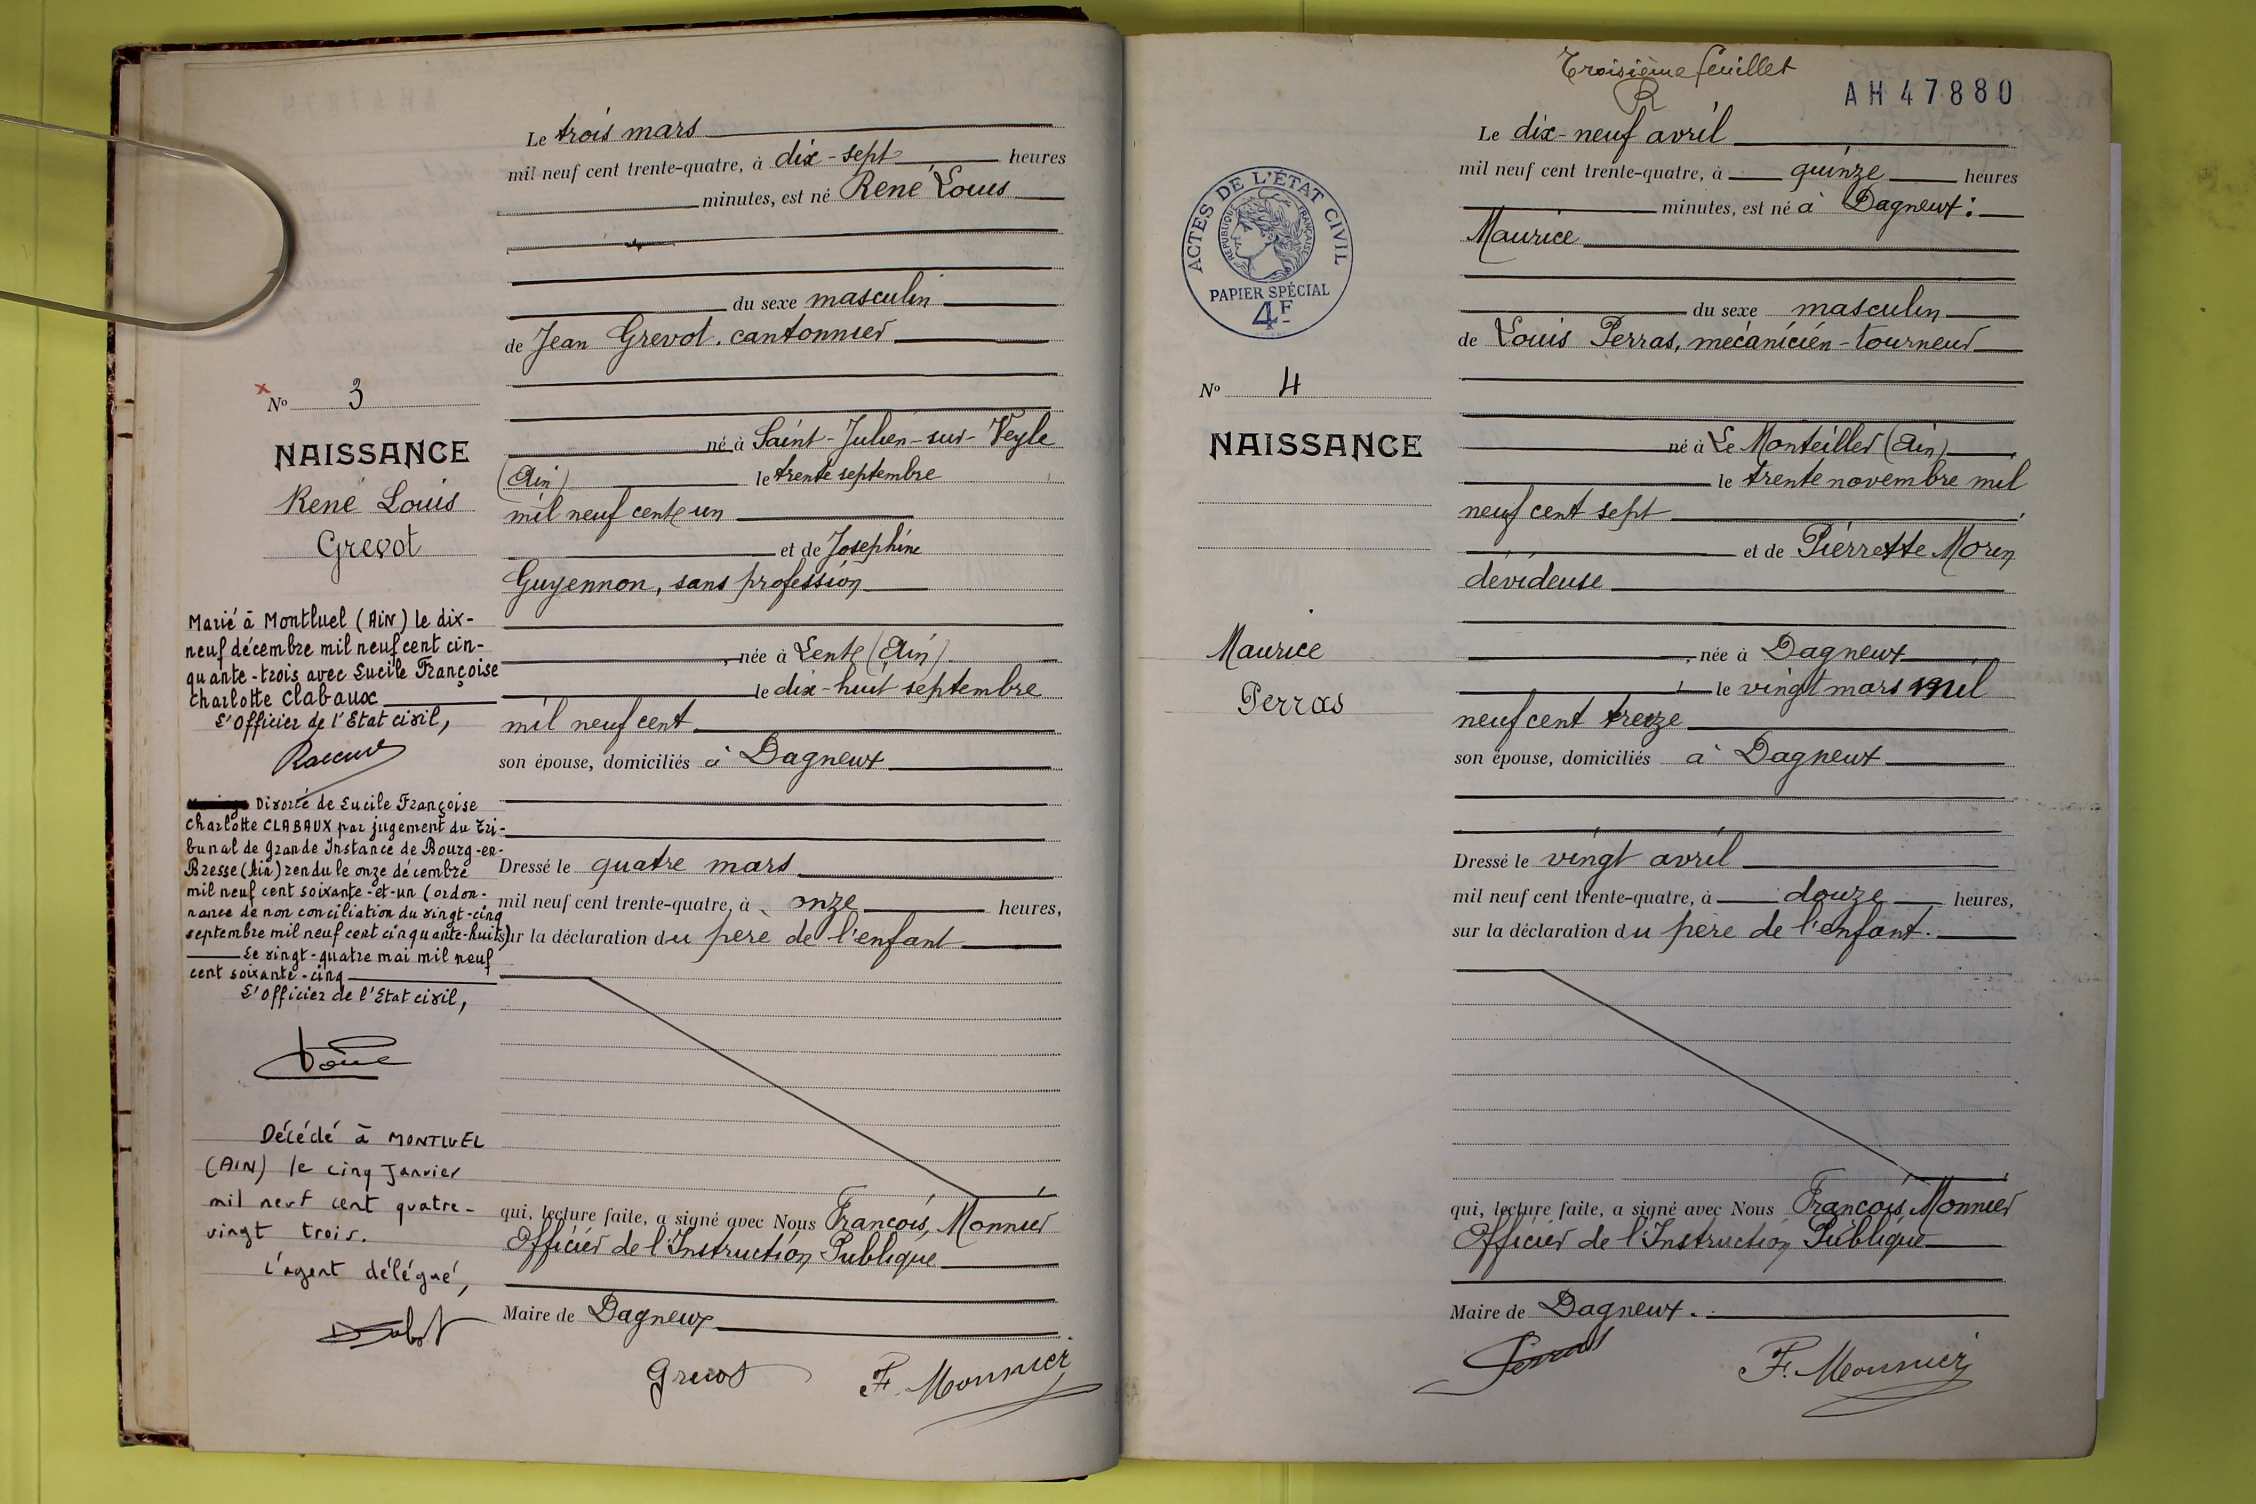 Le trois mars
mil neuf cent trente-quatre, à dix-sept heures
minutes, est né René Louis
du sexe masculin
de Jean Grevot. cantonnier
né à Saint-Julien-sur-Veyle
(Ain) le trente septembre
mil neuf cent un
et de Joséphine
Guyennon, sans profession
née à Lent (Ain)
le dix-huit septembre
mil neuf cent
son épouse, domiciliés à Dagneux
Dressé le quatre mars
mil neuf cent trente-quatre, à onze heures,
sur la déclaration du père de l'enfant
qui, lecture faite, a signé avec Nous François, Monnier
Officier de l'Instruction Publique
Maire de Dagneux
Grevot F. Monnier
No 3
NAISSANCE
René Louis
Grevot
Marié à Montluel (AiN) le dix-
neuf décembre mil neuf cent cin-
quante-trois avec Lucile Françoise
Charlotte Clabaux
L'Officier de l'Etat civil,
Divorcé de Lucile Françoise
Charlotte CLABAUX par jugement du Tri-
bunal de Grande Instance de Bourg-en-
Bresse (Ain) rendu le onze décembre
mil neuf cent soixante-et-un (ordon-
nance de non conciliation du vingt-cinq
septembre mil neuf cent cinquante-huit)
Le vingt-quatre mai mil neuf
cent soixante-cinq
L'Officier de l'Etat civil,
Décédé à MONTLUEL
(AIN) le cinq Janvier
mil neuf cent quatre-
vingt trois.
L'agent délégué,
Troisième feuillet
R
AH47880
Le dix-neuf avril
mil neuf cent trente-quatre, à quinze heures
minutes, est né à Dagneux:
Maurice
du sexe masculin
de Louis Perras, mécanicien-tourneur
né à Le Montellier (Ain)
le trente novembre mil
neuf cent sept
et de Pierrette Morin
dévideuse
née à Dagneux
le vingt mars mil
neuf cent treize
son épouse, domiciliés à Dagneux
Dressé le vingt avril
mil neuf cent trente-quatre, à douze heures,
sur la déclaration du père de l'enfant.
qui, lecture faite, a signé avec Nous François, Monnier
Officier de l'Instruction Publique
Maire de Dagneux.
Perras F. Monnier
ACTES DE L'ÉTAT CIVIL
RÉPUBLIQUE FRANÇAISE
PAPIER SPÉCIAL
4F
No 4
NAISSANCE
Maurice
Perras